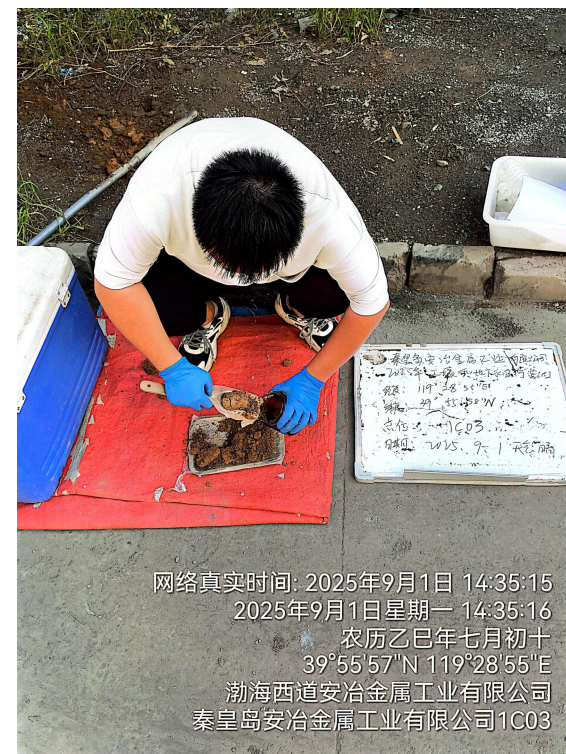 秦皇岛安冶金属工业有限公司
2025年土壤和地下水自行监测
经度: 119°28'55"E
纬度: 39°55'58"N
点位: 1C03
日期: 2025.9.1 天气晴
网络真实时间: 2025年9月1日 14:35:15
2025年9月1日星期一 14:35:16
农历乙巳年七月初十
39°55'57"N 119°28'55"E
渤海西道安冶金属工业有限公司
秦皇岛安冶金属工业有限公司1C03